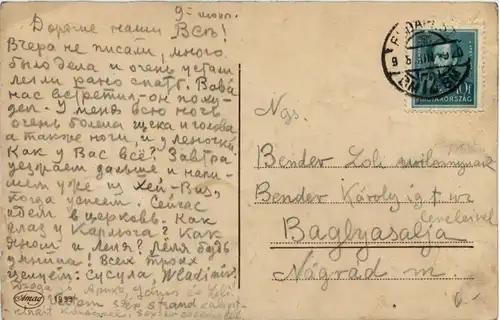 9го июн.
Дорогие наши Все!
Вчера не писали, много
было дела и очень устали
легли рано спать. Вова
нас встретил-он поху-
дел. У меня всю ночь
очень болела щека и голова
а также ноги, и у Леночки
Как у Вас всё? Завтра
уезжаем дальше и напи-
шем уже из Хей-Виз,
когда успеем. Сейчас
идем в церковь. Как
глаз у Карлюга? Как
и Леля? Леля будь
умница! Всех троих
целуем: Сусула, Wladimir.
Amag 1933
BUDAPEST
MAGYARORSZÁG
Ngs.
Bender Loli
Bender Károly ig. úr
leveleivel
Baglyasalja
Nógrád m.